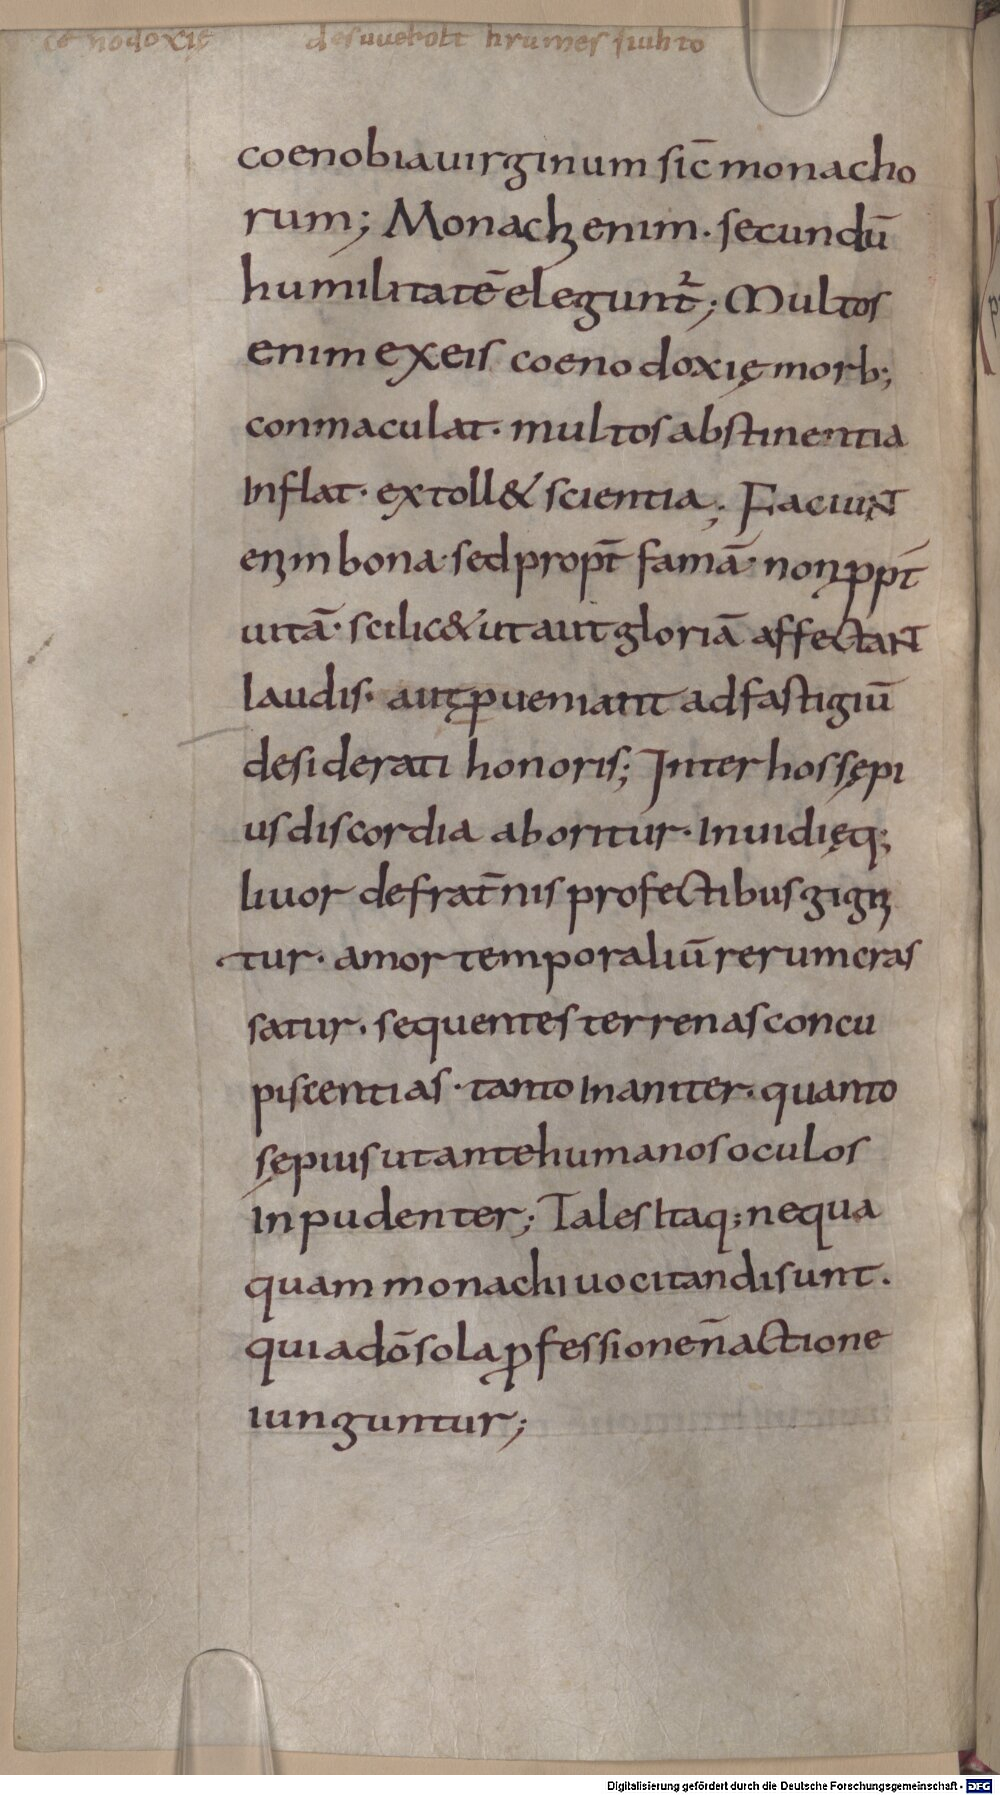 cenodoxię desuuebolt hrumes siuhto
coenobia uirginum sic̄ monacho
rum; Monachi enim. secundū
humilitatē elegunt᷑; Multos
enim ex eis coenodoxię morb;
conmaculat. multos abstinentia
Inflat. extoll& scientia; Faciunt
enim bona. sed propt̄ famā. non ꝓpt̄
uitā. scilic& ut aut gloriā affectant
laudis. aut ꝑueniant ad fastigiū
desiderati honoris; Inter hos sępi
us discordia aboritur. Inuidięq;
liuor de frat̄nis profectibus gigni
tur. amor temporaliū rerum cras
satur. sequentes terrenas concu
piscentias. tanto Inaniter. quanto
sępius ut ante humanos oculos
Inpudenter; Tales Itaq; nequa
quam monachi uocitandi sunt.
qui a dō sola ꝓfessione n̄ actione
iunguntur;
Digitalisierung gefördert durch die Deutsche Forschungsgemeinschaft - DFG